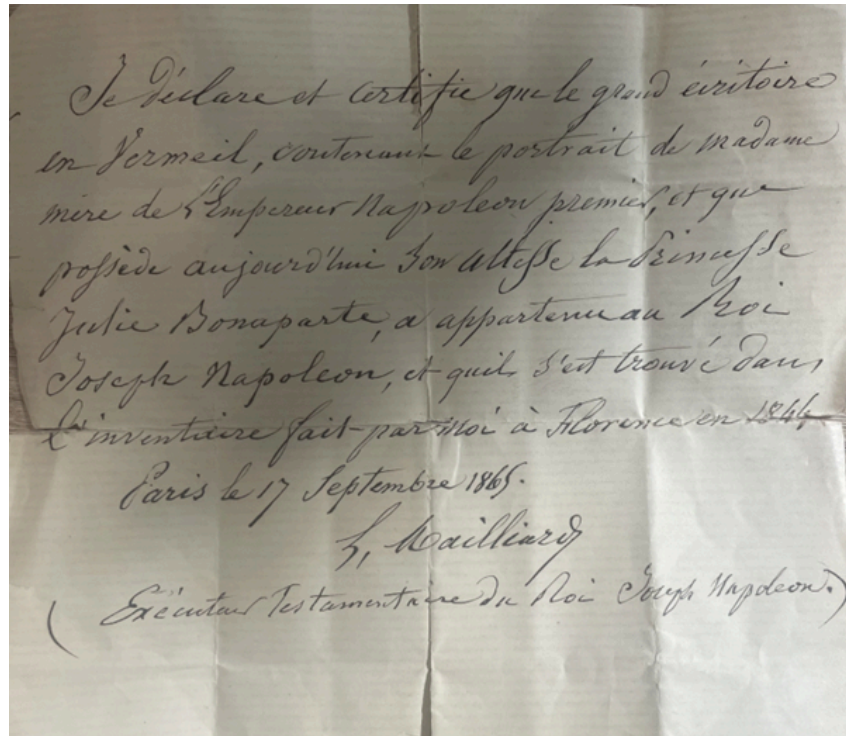 Je déclare et certifie que le grand écritoire
en Vermeil, contenant le portrait de madame
mère de L'Empereur Napoleon premier, et que
possède aujourd'hui Son Altesse la Princesse
Julie Bonaparte, a appartenu au Roi
Joseph Napoleon, et quil s'est trouvé dans
l'inventaire fait par moi à Florence en 1844,
Paris le 17 Septembre 1865.
L, Mailliard
( Exécuteur Testamentaire du Roi Joseph Napoleon. )